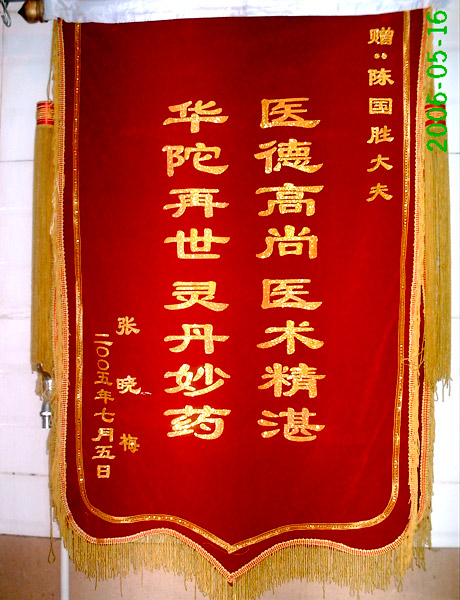 赠：陈国胜大夫
医德高尚医术精湛
华陀再世灵丹妙药
张晓梅
二〇〇五年七月五日
2006-05-16